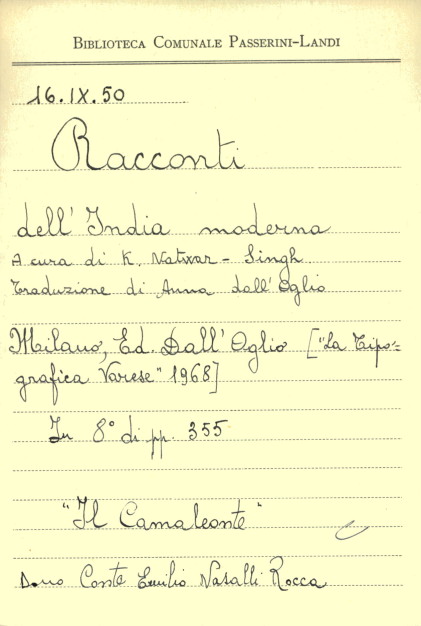 BIBLIOTECA COMUNALE PASSERINI-LANDI
16.IX.50
Racconti
dell'India moderna
A cura di K. Natwar - Singh
Traduzione di Anna dall'Oglio
Milano, Ed. Dall'Oglio ["La Tipo=
grafica Varese" 1968]
In 8° di pp. 355
"Il Camaleonte"
Dono Conte Emilio Nasalli Rocca